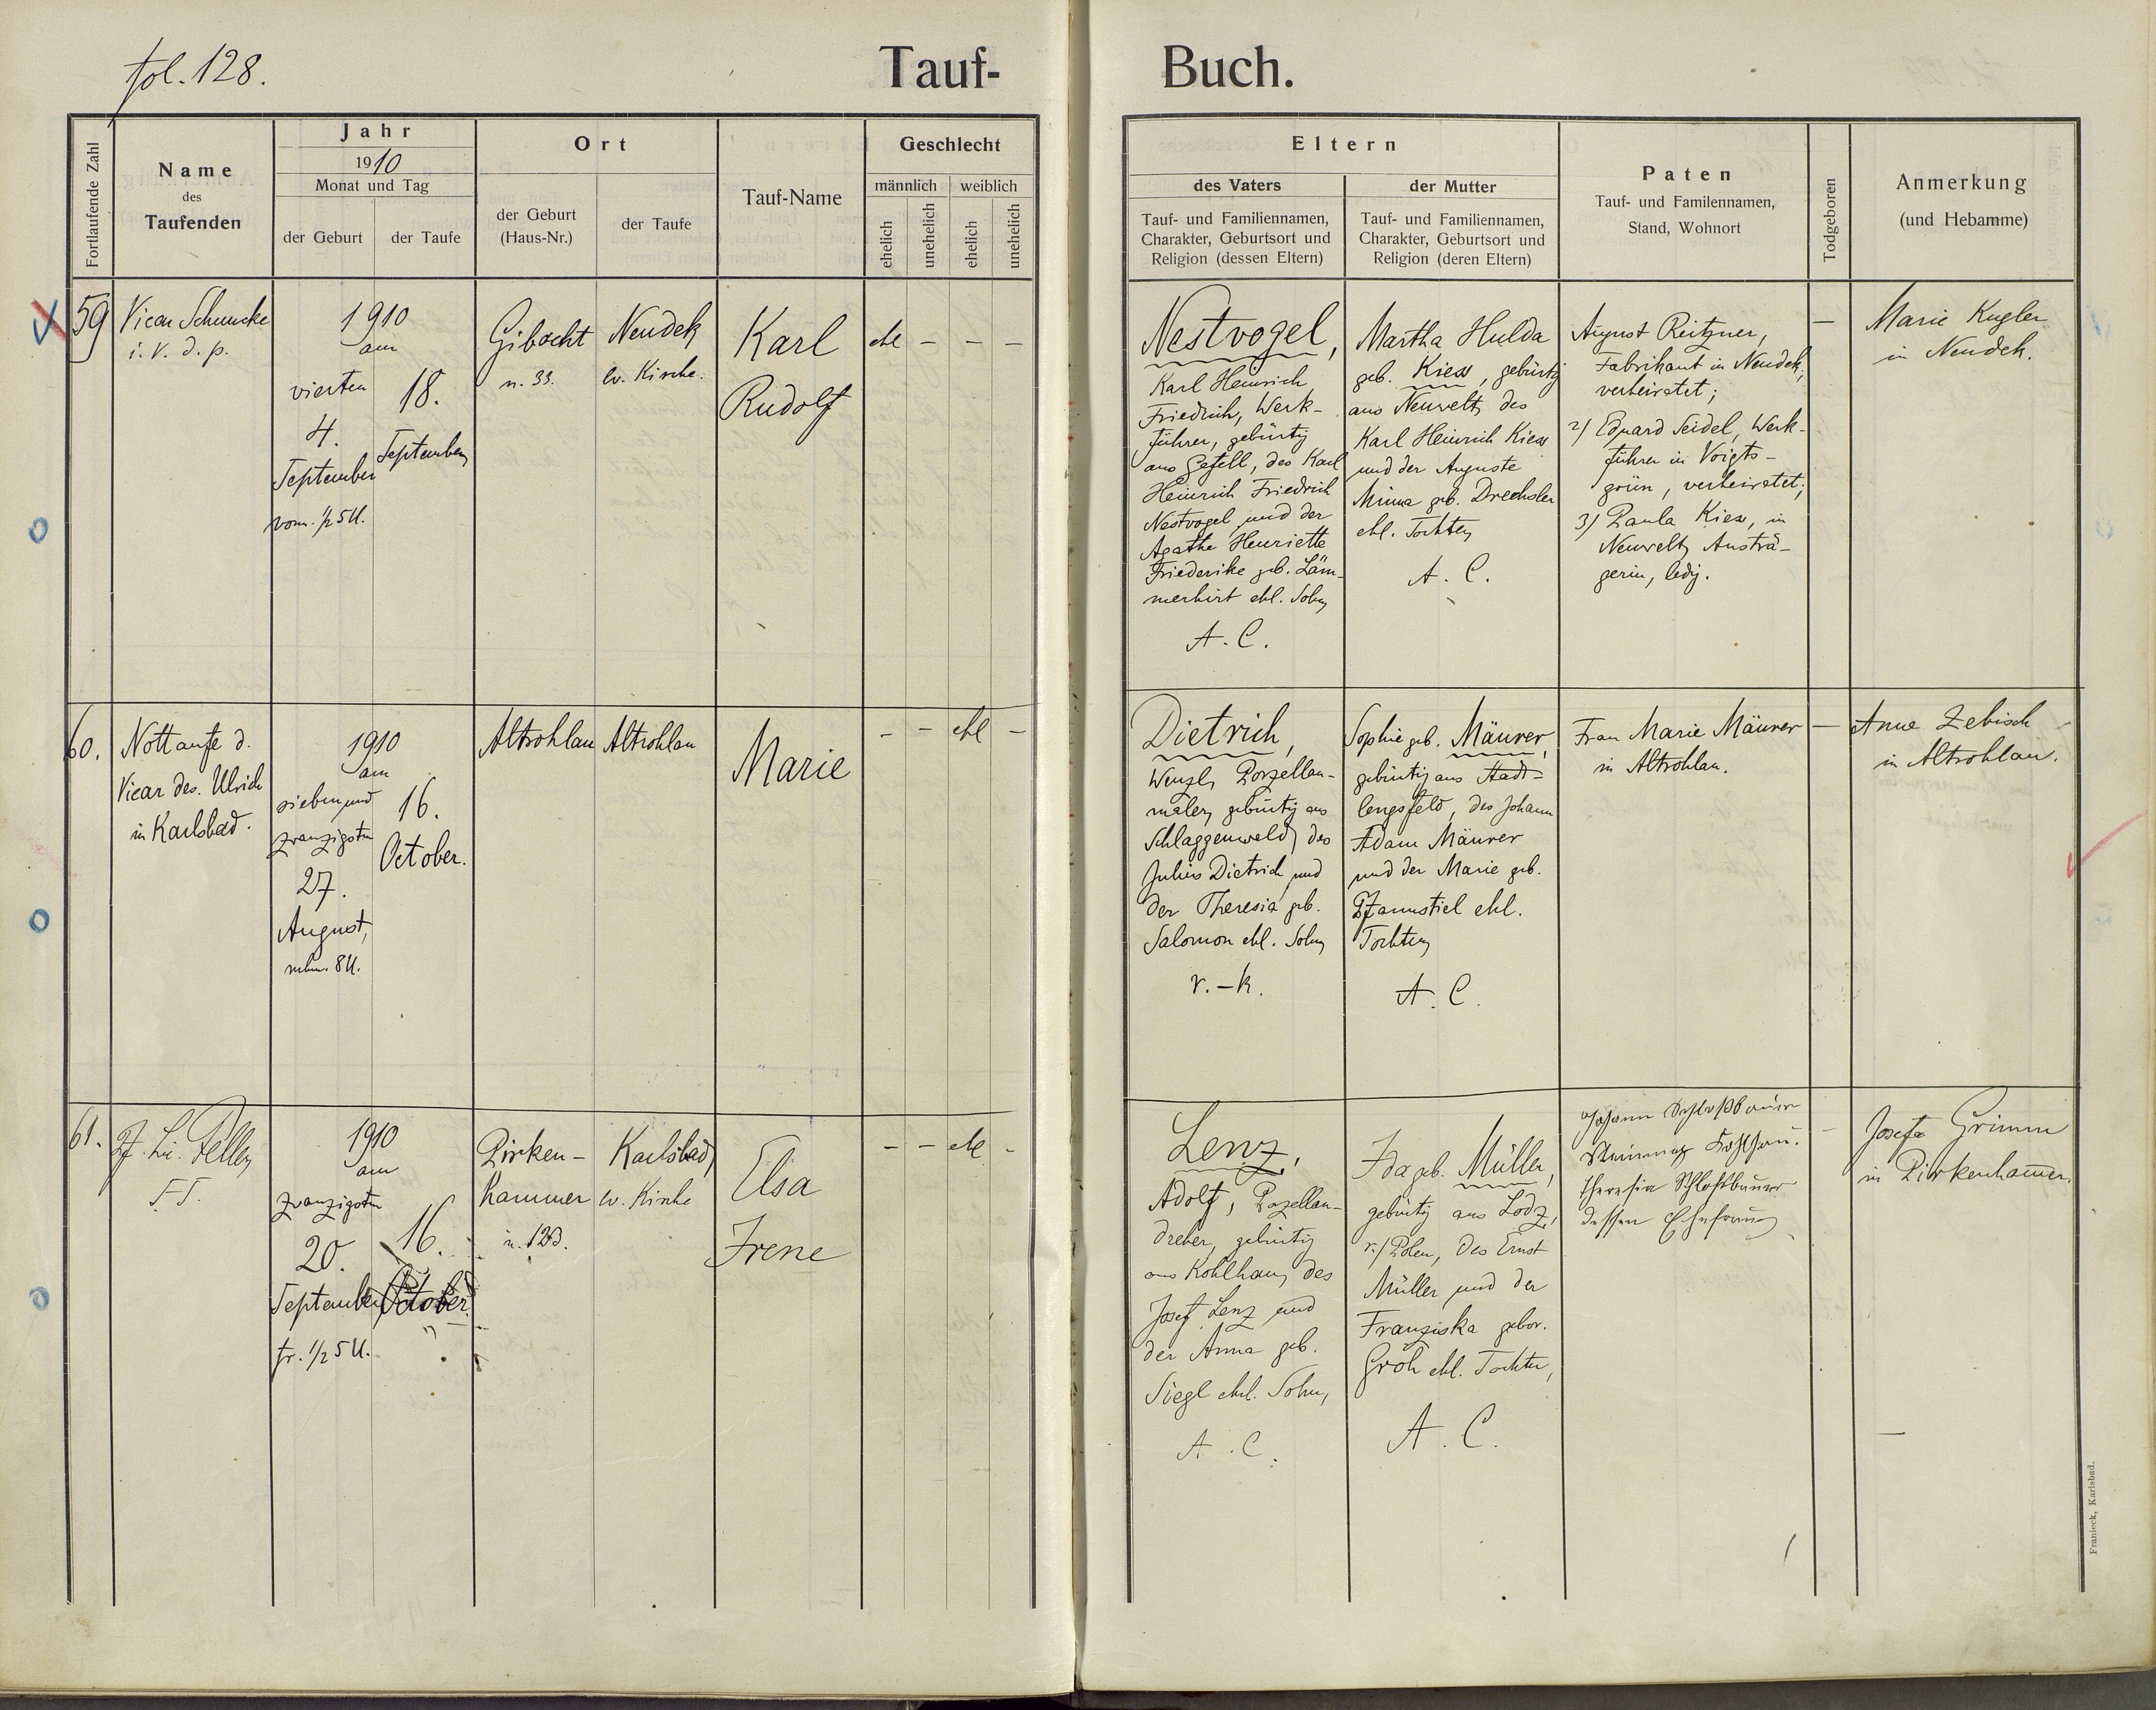 fol. 128.
Tauf-
Buch.
Fortlaufende Zahl
Name
des
Taufenden
Jahr
1910
Monat und Tag
der Geburt
der Taufe
Ort
der Geburt
(Haus-Nr.)
der Taufe
Tauf-Name
Geschlecht
männlich
weiblich
ehelich
unehelich
ehelich
unehelich
Eltern
des Vaters
Tauf- und Familiennamen,
Charakter, Geburtsort und
Religion (dessen Eltern)
der Mutter
Tauf- und Familiennamen,
Charakter, Geburtsort und
Religion (deren Eltern)
Paten
Tauf- und Familennamen,
Stand, Wohnort
Todgeboren
Anmerkung
(und Hebamme)
59
Vicar Schmucke
i. V. d. p.
1910
am
vierten
4.
September
vorm. ½5 U.
18.
September
Gibacht
n. 33.
Neudek
ev. Kirche.
Karl
Rudolf
ehl – – –
Nestvogel,
Karl Heinrich
Friedrich, Werk-
führer, gebürtig
aus Gefell, des Karl
Heinrich Friedrich
Nestvogel und der
Agathe Henriette
Friederike geb. Läm-
merhirt ehl. Sohn
A. C.
Martha Hulda
geb. Kiess, gebürtig
aus Neuwelt, des
Karl Heinrich Kiess
und der Auguste
Minna geb. Drechsler
ehl. Tochter
A. C.
August Reitzner,
Fabrikant in Neudek,
verheiratet;
2) Eduard Seidel, Werk-
führer in Voigts-
grün, verheiratet;
3) Paula Kiess, in
Neuwelt, Austrä-
gerin, ledig.
–
Marie Kugler
in Neudek.
60.
Nottaufe d.
Vicar des. Ulrich
in Karlsbad.
1910
am
siebenund
zwanzigsten
27.
August,
nchm. 8 U.
16.
October.
Altrohlau
Altrohlau
Marie
– – ehl –
Dietrich,
Wenzl, Porzellan-
maler, gebürtig aus
Schlaggenwald, des
Julius Dietrich und
der Theresia geb.
Salomon ehl. Sohn
r.-k.
Sophie geb. Mäurer,
gebürtig aus Stadt-
lengsfeld, des Johann
Adam Mäurer
und der Marie geb.
Pfannstiel ehl.
Tochter
A. C.
Frau Marie Mäurer
in Altrohlau.
–
Anna Zebisch
in Altrohlau.
61.
1910
am
zwanzigsten
20.
September
fr. ½5 U.
16.
October
Pirken-
hammer
n. 123.
Karlsbad,
ev. Kirche
Elsa
Irene
– – ehl –
Lenz,
Adolf, Porzellan-
dreher, gebürtig
aus Kohlhau, des
Josef Lenz und
der Anna geb.
Siegl ehl. Sohn,
A. C.
Ida geb. Müller,
gebürtig aus Lodz,
r./Polen, des Ernst
Müller und der
Franziska gebor.
Groh ehl. Tochter,
A. C.
Johann Schloßbauer
Theresia Schloßbauer
dessen Ehefrau
–
Josefa Grimm
in Pirkenhammer.
Franieck, Karlsbad.